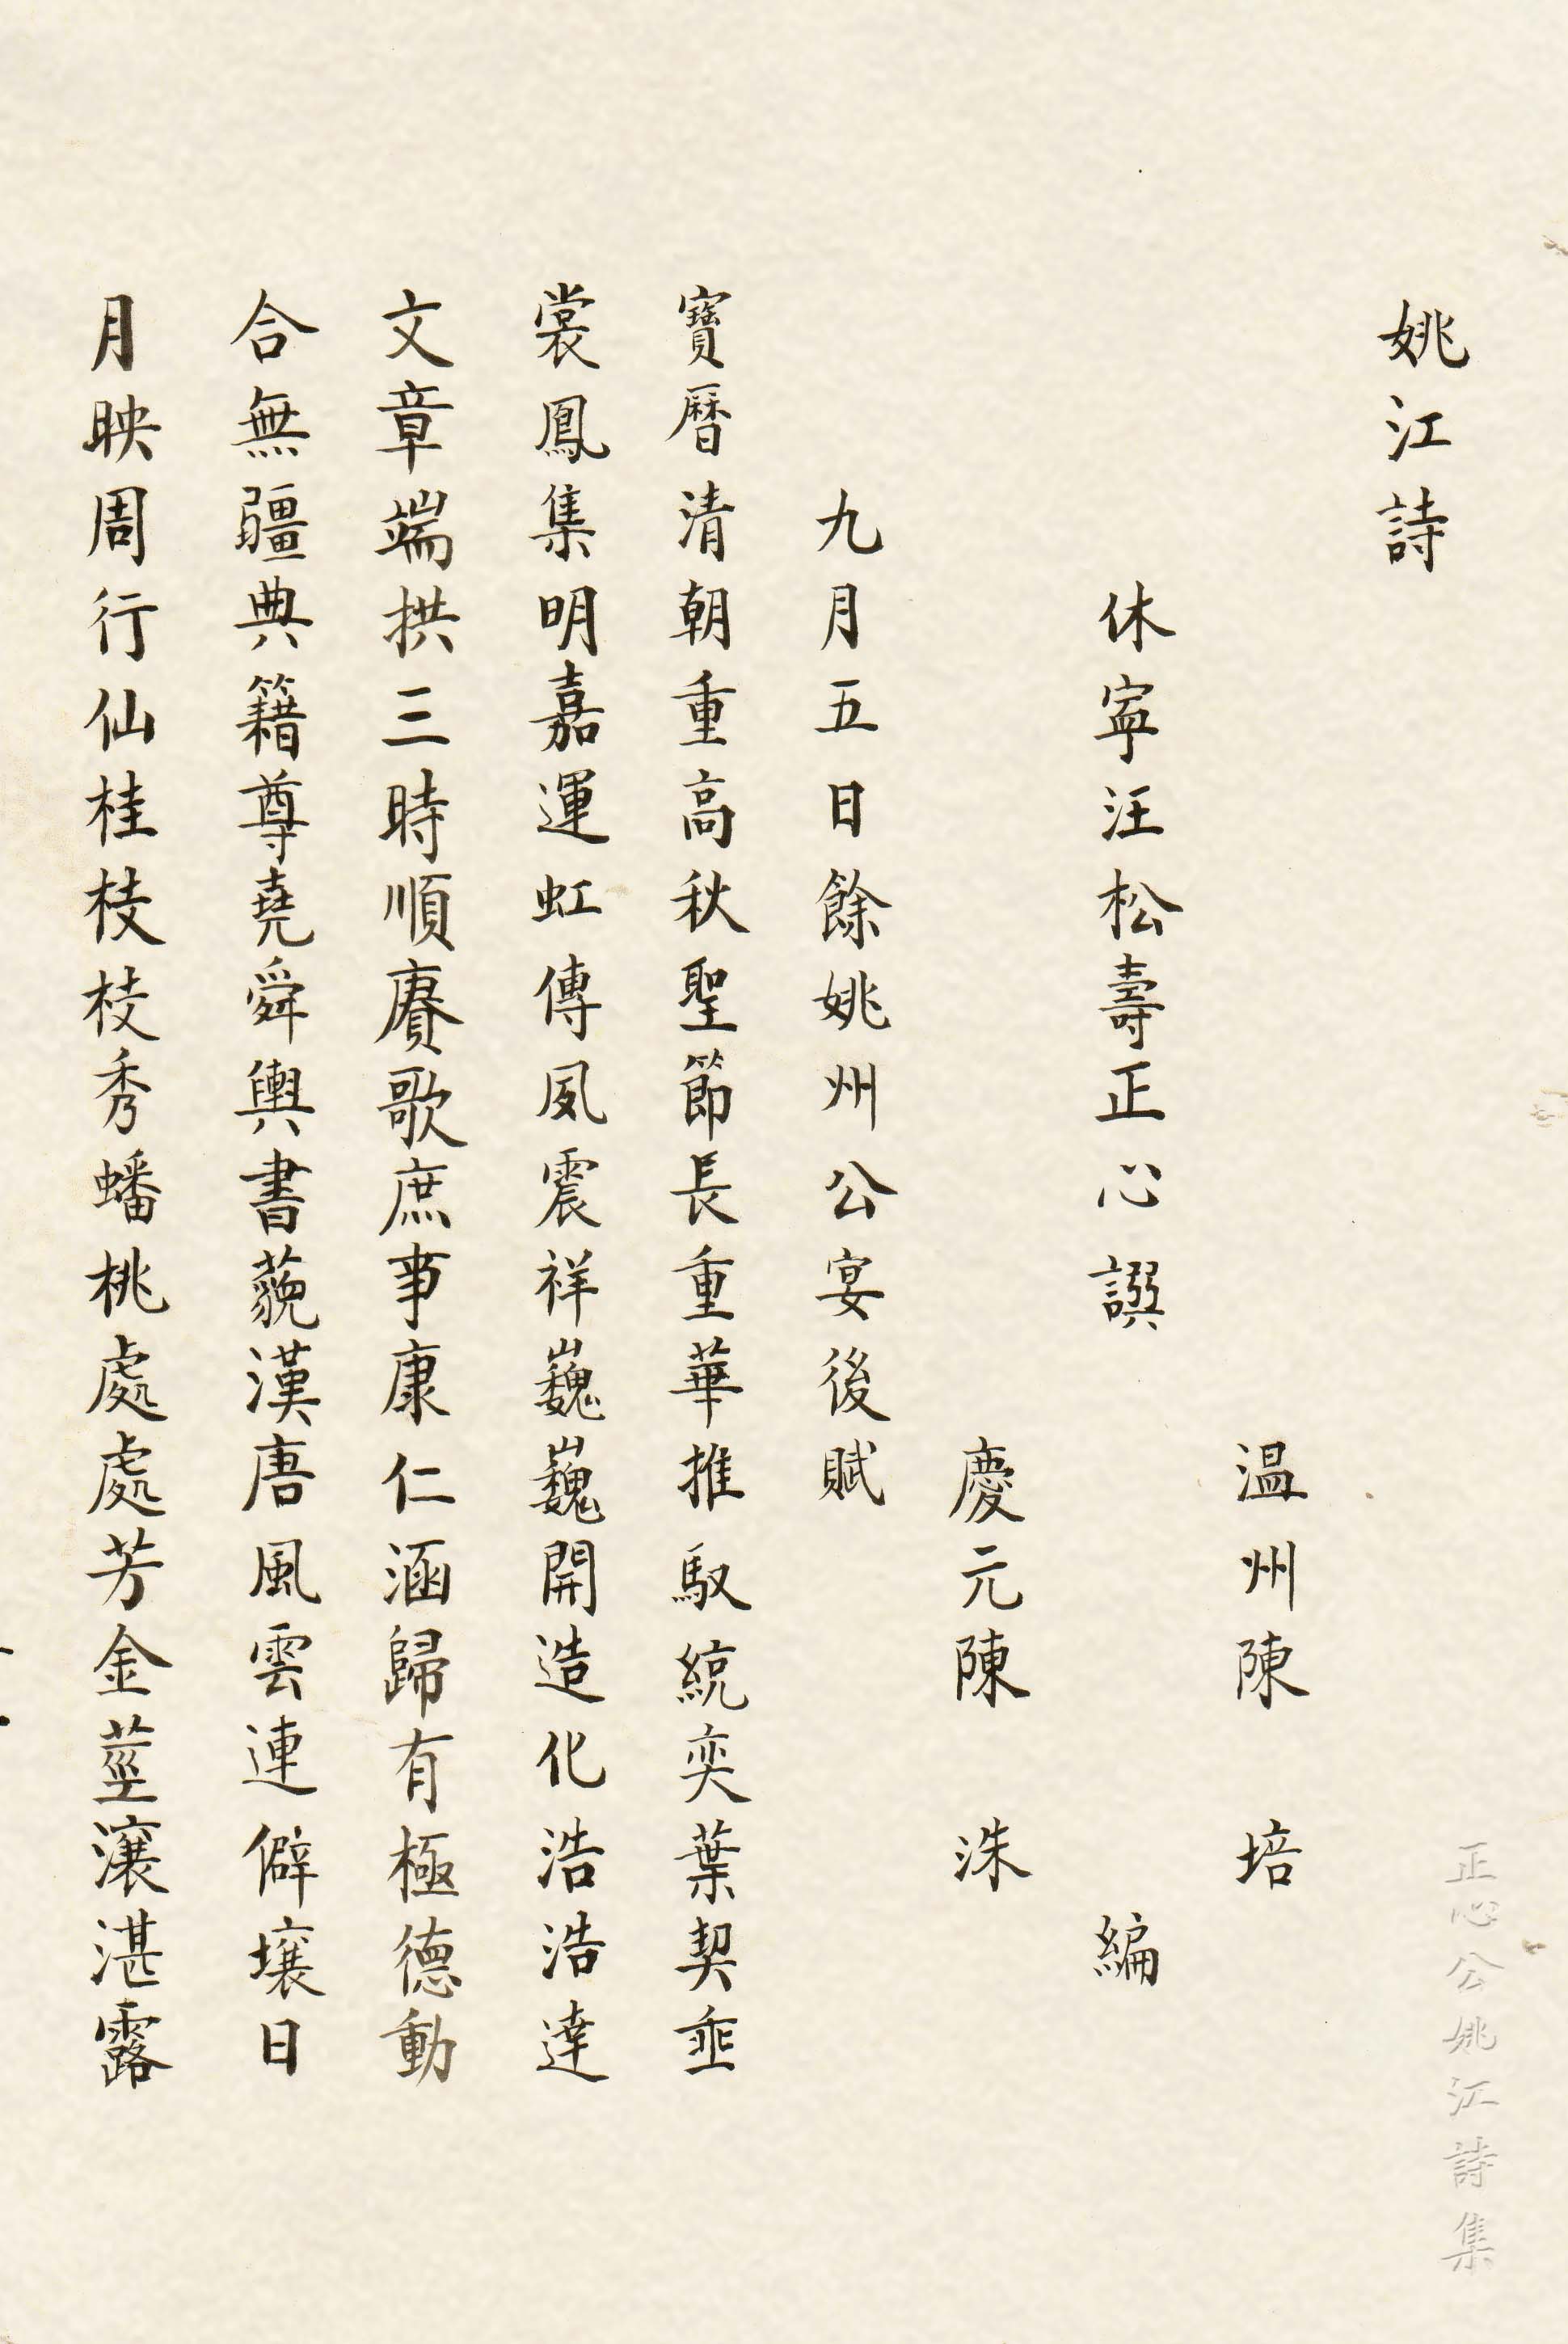 姚江詩
溫州陳　培
休寧汪松壽正心譔　編
慶元陳　洙
九月五日餘姚州公宴後賦
寶曆清朝重高秋聖節長重華推馭統奕葉契垂
裳鳳集明嘉運虹傳夙震祥巍巍開造化浩浩達
文章端拱三時順賡歌庶事康仁涵歸有極德動
合無疆典籍尊堯舜輿書藐漢唐風雲連僻壤日
月映周行仙桂枝枝秀蟠桃處處芳金莖瀼湛露
正心公姚江詩集